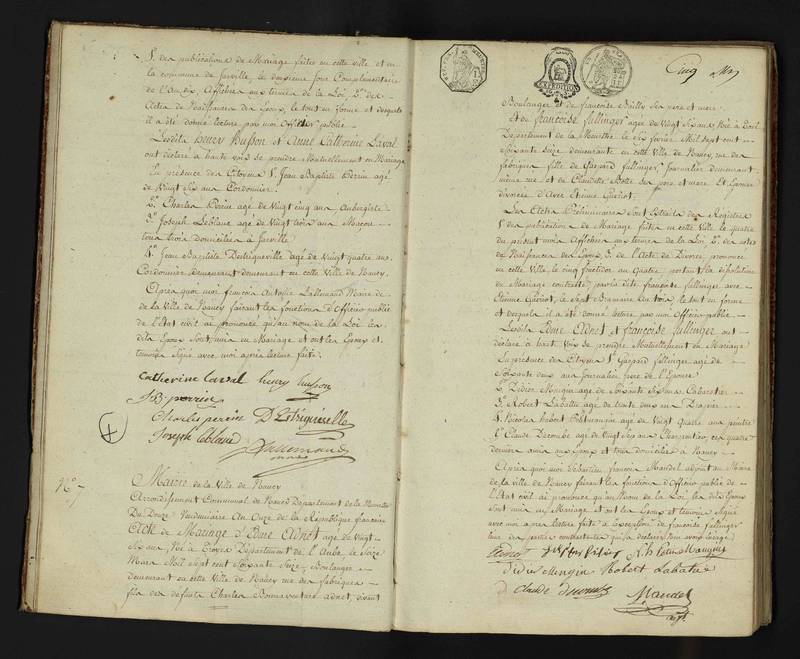 1°. des publications de Mariage faites en cette ville et en
la commune de Jarville, le deuxieme jour Complementaire
de l'an dix, Affichées aux termes de la Loi, 2°. des
Actes de Naissances des Epoux, le tout en forme et desquels
il a été donné lecture par moi Officier public.
Lesdits henry husson et Anne Catherine Laval
ont déclaré a haute voix se prendre Mutuellement en Mariage
En presence des Citoyens 1°. Jean Baptiste Perrin agé
de Vingt Six ans Cordonnier.
2°. Charles Perrin agé de Vingt cinq ans Aubergiste
3°. Joseph Leblanc agé de Vingt trois ans Maçon
tous trois domiciliés a Jarville.
4°. Jean Baptiste agé de Vingt quatre ans
Cordonnier demeurant en cette Ville de Nancy.
Après quoi moi françois Antoine Lallemand Maire de
la Ville de Nancy faisant les fonctions d'Officier public
de l'Etat civil ai prononcé qu'au nom de la Loi les
dits Epoux Sont unis en Mariage et ont les Epoux et
temoins Signé avec moi après lecture faite.
Catherine Laval henry husson
JB perrin
Charles perrin
Joseph leblanc
Lallemand
N°. 7
Mairie de la Ville de Nancy
Arrondissement Communal de Nancy Departement de la Meurthe
Du Douze Vendemiaire An Onze de la République francaise
Acte de Mariage d'Edme Adnot agé de Vingt-
Six ans, Né à Troyes Département de l'Aube, le Seize
Mars Mil Sept cent Soixante Seize, Boulanger
demeurant en cette Ville de Nancy rue des fabriques
fils des defunts Charles Bonnaventure adnot, vivant
Cinq
Boulanger et de françoise Ses pere et mere
et de françoise fullinger agé de Vingt Six ans Née à
Departement de la Meurthe le Six fevrier Mil Sept cent
Soixante Seize demeurante en cette Ville de Nancy rue des
fabriques fille de Gaspard fullinger Journalier demeurant
même rue et de Claudette Ses pere et mere Et Epouse
divorcée d'Avec Etienne
Les Actes Préliminaires sont Extraits des Registres
1°. des publications de Mariage faites en cette ville le quatre
du present mois Affichées aux termes de la Loi, 2°. des actes
de Naissances des Epoux, 3°. de l'Acte de Divorce prononcé
en cette Ville le cinq fructidor an Quatre portant la dissolution
du Mariage contracté par ladite françoise fullinger avec
Etienne le Sept Brumaire An trois, le tout en forme
et desquels il a été donné lecture par moi Officier public.
Lesdits Edme Adnot et françoise fullinger ont
déclaré a haute voix se prendre Mutuellement en Mariage
En presence des Citoyens 1°. Gaspard fullinger agé de
Soixante deux ans Journalier pere de l'Epouse
2°. Didier Mengin agé de Soixante Six ans Cabaretier
3°. Robert Labatte agé de trente deux ans Drapier
4°. Nicolas hubert agé de Vingt Quatre ans peintre
Claude agé de Vingt Sept ans Charpentier, ces quatre
derniers amis aux Epoux et tous domiciliés a Nancy
Après quoi moi Sebastien françois Mandel adjoint au Maire
de la ville de Nancy faisant les fonctions d'Officier public de
l'Etat civil ai prononcé qu'au Nom de la Loi les dits Epoux
Sont unis en Mariage et ont les Epoux et temoins Signé
avec moi apres lecture faite à l'exception de françoise fullinger
l'une des parties contractantes qui a déclaré
Didier Mengin Robert Labatte
Claude
Mandel
adjt